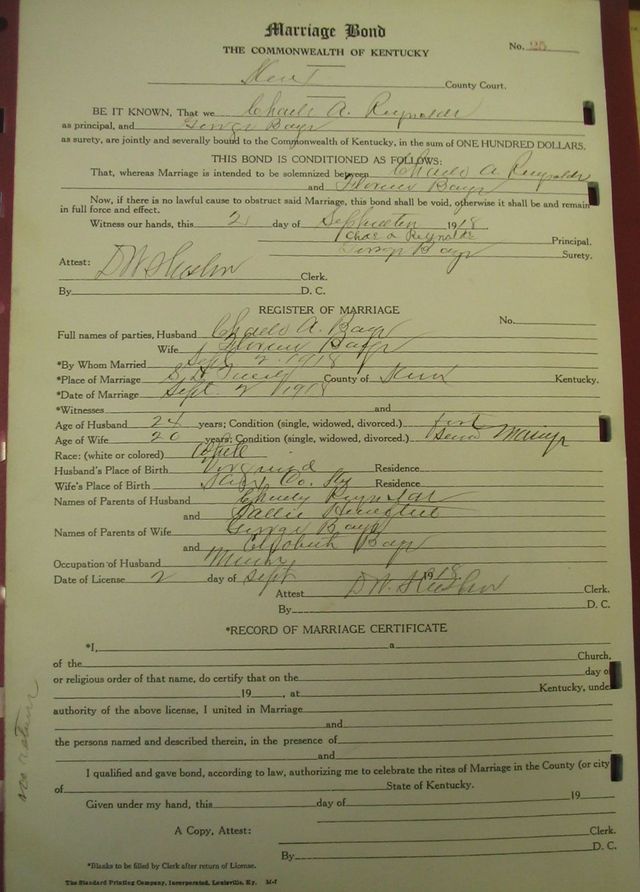 Marriage Bond
THE COMMONWEALTH OF KENTUCKY
No. 25
County Court.
BE IT KNOWN, That we Charles A. Reynolds
as principal, and George Bays
as surety, are jointly and severally bound to the Commonwealth of Kentucky, in the sum of ONE HUNDRED DOLLARS.
THIS BOND IS CONDITIONED AS FOLLOWS:
That, whereas Marriage is intended to be solemnized between Charles A. Reynolds
and Florence Bays
Now, if there is no lawful cause to obstruct said Marriage, this bond shall be void, otherwise it shall be and remain
in full force and effect.
Witness our hands, this 2 day of September 1918
Chas a Reynolds Principal.
George Bays Surety.
Attest: Clerk.
By D. C.
REGISTER OF MARRIAGE
No.
Full names of parties, Husband Charles A. Bays
Wife Florence Bays
*By Whom Married Sept. 2 1918
*Place of Marriage County of Kentucky.
*Date of Marriage Sept. 2 1918
*Witnesses and
Age of Husband 24 years; Condition (single, widowed, divorced.) first
Age of Wife 20 years; Condition (single, widowed, divorced.)
Race: (white or colored) White
Husband's Place of Birth Virginia Residence
Wife's Place of Birth Co. Ky Residence
Names of Parents of Husband Charley Reynolds
and Sallie
Names of Parents of Wife George Bays
and Elizabeth Bays
Occupation of Husband Miner
Date of License 2 day of Sept 1918
Attest Clerk.
By D. C.
*RECORD OF MARRIAGE CERTIFICATE
*I, a
of the Church,
or religious order of that name, do certify that on the day of
19 , at Kentucky, under
authority of the above license, I united in Marriage
and
the persons named and described therein, in the presence of
and
I qualified and gave bond, according to law, authorizing me to celebrate the rites of Marriage in the County (or city
of State of Kentucky.
Given under my hand, this day of 19
A Copy, Attest: Clerk.
By D. C.
*Blanks to be filled by Clerk after return of License.
The Standard Printing Company, Incorporated, Louisville, Ky. M-1
no return